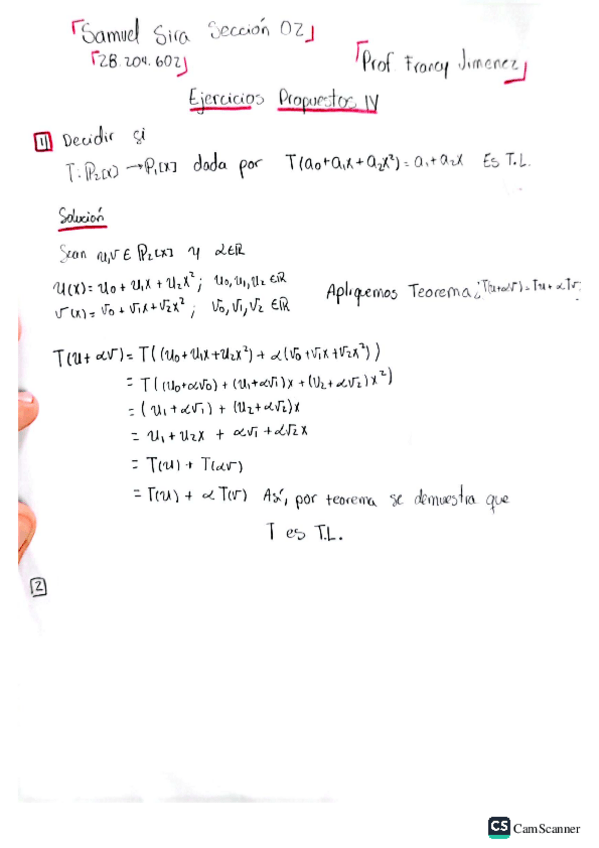 Samuel Sira Sección 02
28.204.602
Prof. Francy Jimenez
Ejercicios Propuestos IV
1 Decidir si
T: P₂[x] → P₁[x] dada por T(a₀+a₁x+a₂x²) = a₁+a₂x Es T.L.
Solución
Sean u,v ∈ P₂[x] y α∈R
u(x) = u₀ + u₁x + u₂x² ; u₀, u₁, u₂ ∈ R
v(x) = v₀ + v₁x + v₂x² ; v₀, v₁, v₂ ∈ R
Apliquemos Teorema; T(u+αv) = Tu + αTv;
T(u+αv) = T((u₀+u₁x+u₂x²) + α(v₀+v₁x+v₂x²))
= T((u₀+αv₀) + (u₁+αv₁)x + (u₂+αv₂)x²)
= (u₁+αv₁) + (u₂+αv₂)x
= u₁ + u₂x + αv₁ + αv₂x
= T(u) + T(αv)
= T(u) + αT(v) Así, por teorema se demuestra que
T es T.L.
2
CS CamScanner